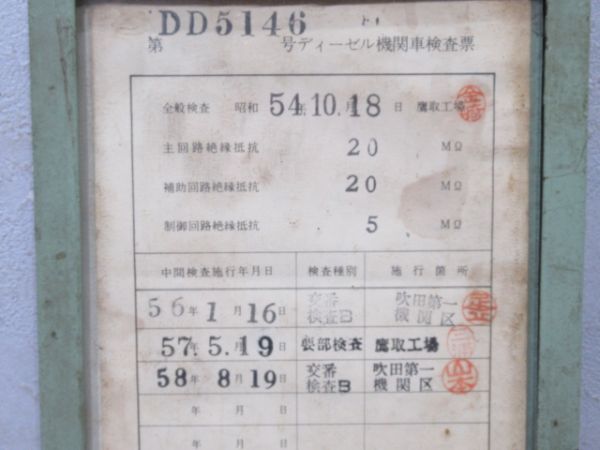 第 DD5146 号ディーゼル機関車検査票
全般検査 昭和 54年10月18日 鷹取工場
主回路絶縁抵抗 20 MΩ
補助回路絶縁抵抗 20 MΩ
制御回路絶縁抵抗 5 MΩ
中間検査施行年月日 検査種別 施行箇所
56年1月16日 交番検査B 吹田第一機関区
57.5.19日 要部検査 鷹取工場
58年8月19日 交番検査B 吹田第一機関区 山本
年 月 日
年 月 日